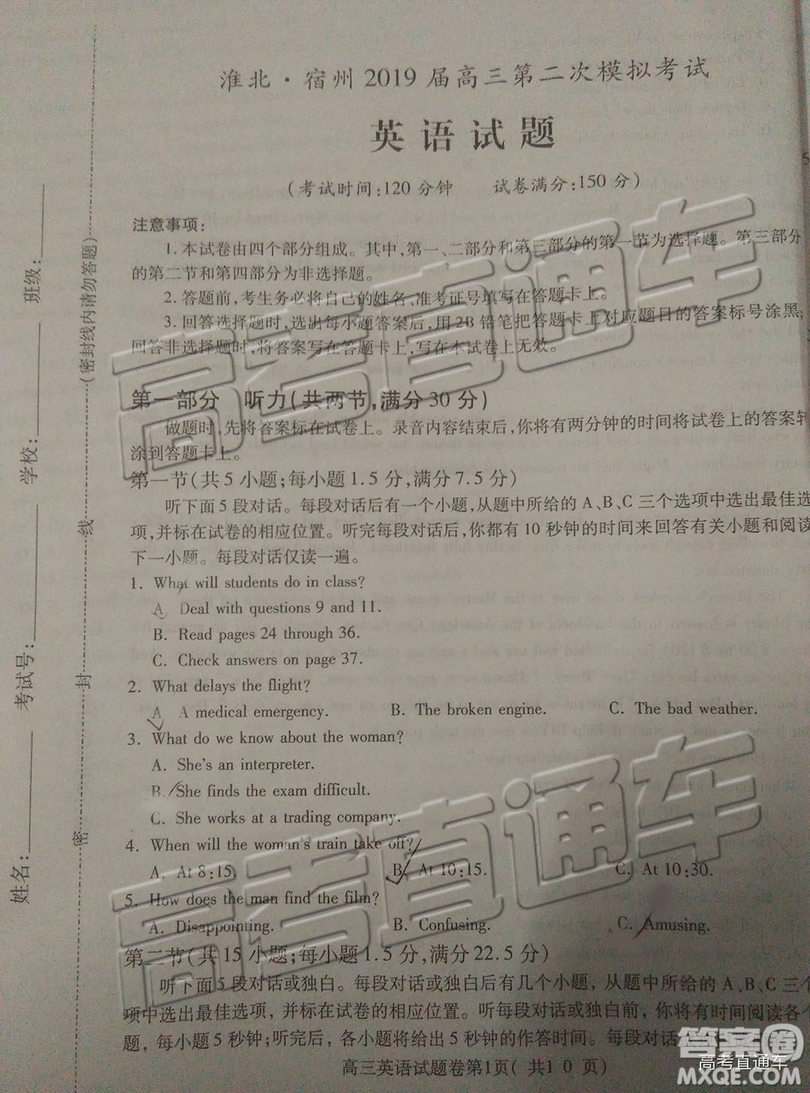 淮北·宿州2019届高三第二次模拟考试
英语试题
(考试时间:120分钟 试卷满分:150分)
注意事项:
1.本试卷由四个部分组成。其中,第一、二部分和第三部分的第一节为选择题。第三部分
的第二节和第四部分为非选择题。
2.答题前,考生务必将自己的姓名、准考证号填写在答题卡上。
3.回答选择题时,选出每小题答案后,用2B铅笔把答题卡上对应题目的答案标号涂黑;
回答非选择题时,将答案写在答题卡上,写在本试卷上无效。
第一部分 听力(共两节,满分30分)
做题时,先将答案标在试卷上。录音内容结束后,你将有两分钟的时间将试卷上的答案转
涂到答题卡上。
第一节(共5小题;每小题1.5分,满分7.5分)
听下面5段对话。每段对话后有一个小题,从题中所给的A、B、C三个选项中选出最佳选
项,并标在试卷的相应位置。听完每段对话后,你都有10秒钟的时间来回答有关小题和阅读
下一小题。每段对话仅读一遍。
1. What will students do in class?
A Deal with questions 9 and 11.
B. Read pages 24 through 36.
C. Check answers on page 37.
2. What delays the flight?
A A medical emergency. B. The broken engine. C. The bad weather.
3. What do we know about the woman?
A. She's an interpreter.
B. She finds the exam difficult.
C. She works at a trading company.
4. When will the woman's train take off?
A. At 8:15. B. At 10:15. C. At 10:30.
5. How does the man find the film?
A. Disappointing. B. Confusing. C. Amusing.
第二节(共15小题;每小题1.5分,满分22.5分)
听下面5段对话或独白。每段对话或独白后有几个小题,从题中所给的A、B、C三个
项中选出最佳选项,并标在试卷的相应位置。听每段对话或独白前,你将有时间阅读各个
题,每小题5秒钟;听完后,各小题将给出5秒钟的作答时间。每段对话
高三英语试题卷第1页( 共10页)
班级:
学校:
考试号:
姓名:
(密封线内请勿答题)
线
封
密
高考直通车
高考直通车
高考直通车
答案圈
高考直通车
MXQE.COM